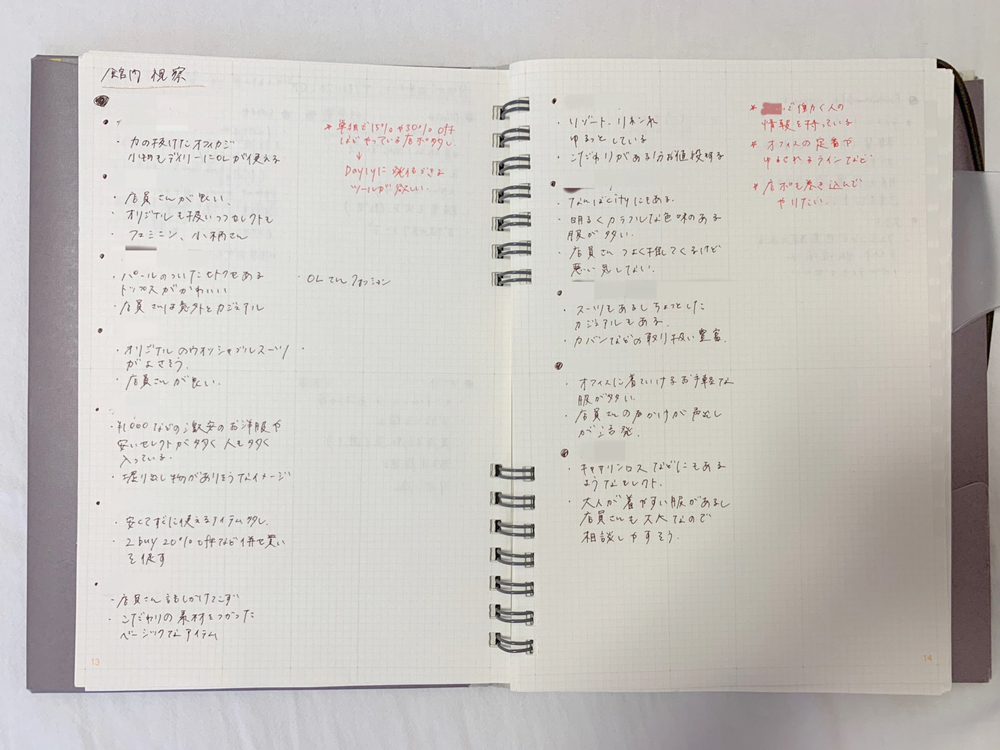 館内 視察
・力の抜けたオフィカジ
小物もデイリーにOLが使える
・店員さんが良い、
・オリジナルも扱いつつセレクトも
・フェミニン、小柄さん
・パールのついたセトクセある
トップスがかわいい
・店員さんは意外とカジュアル
・オリジナルのウオッシャブルスーツ
がよさそう。
・店員さんが良い、
・¥1000などの激安のお洋服や
安いセレクトが多く人も多く
入っている。
・掘り出し物がありそうなイメージ
・安くてすぐに使えるアイテム多し、
・2buy 20%offなど併せ買い
を促す
・店員さん話しかけてこず
・こだわりの素材をつかった
ベーシックなアイテム
* 単独で15%や30%Off
などやっている店ポ多し
↓
Daylyに発信できる
ツールが欲しい
・OLさんファッション
13
・リゾート、リネン系
ゆるっとしている
・こだわりがある分お値段する
・なんばcityにもある。
・明るくカラフルな色味のある
服が多い。
・店員さんつよく推してくるけど
悪い気しない。
・スーツもあるしちょっとした
カジュアルもある。
・カバンなどの取り扱い豊富。
・オフィスに着ていけるお手軽な
服が多い
・店員さんの声かけが声出し
が活発。
・キャサリンロスなどにもある
ようなセレクト。
・大人が着やすい服があるし
店員さんも大人なので
相談しやすそう。
* で働く人の
情報を持っている
* オフィスの定番や
ゆるされるラインなど
* 店ポも巻き込んで
やりたい。
14